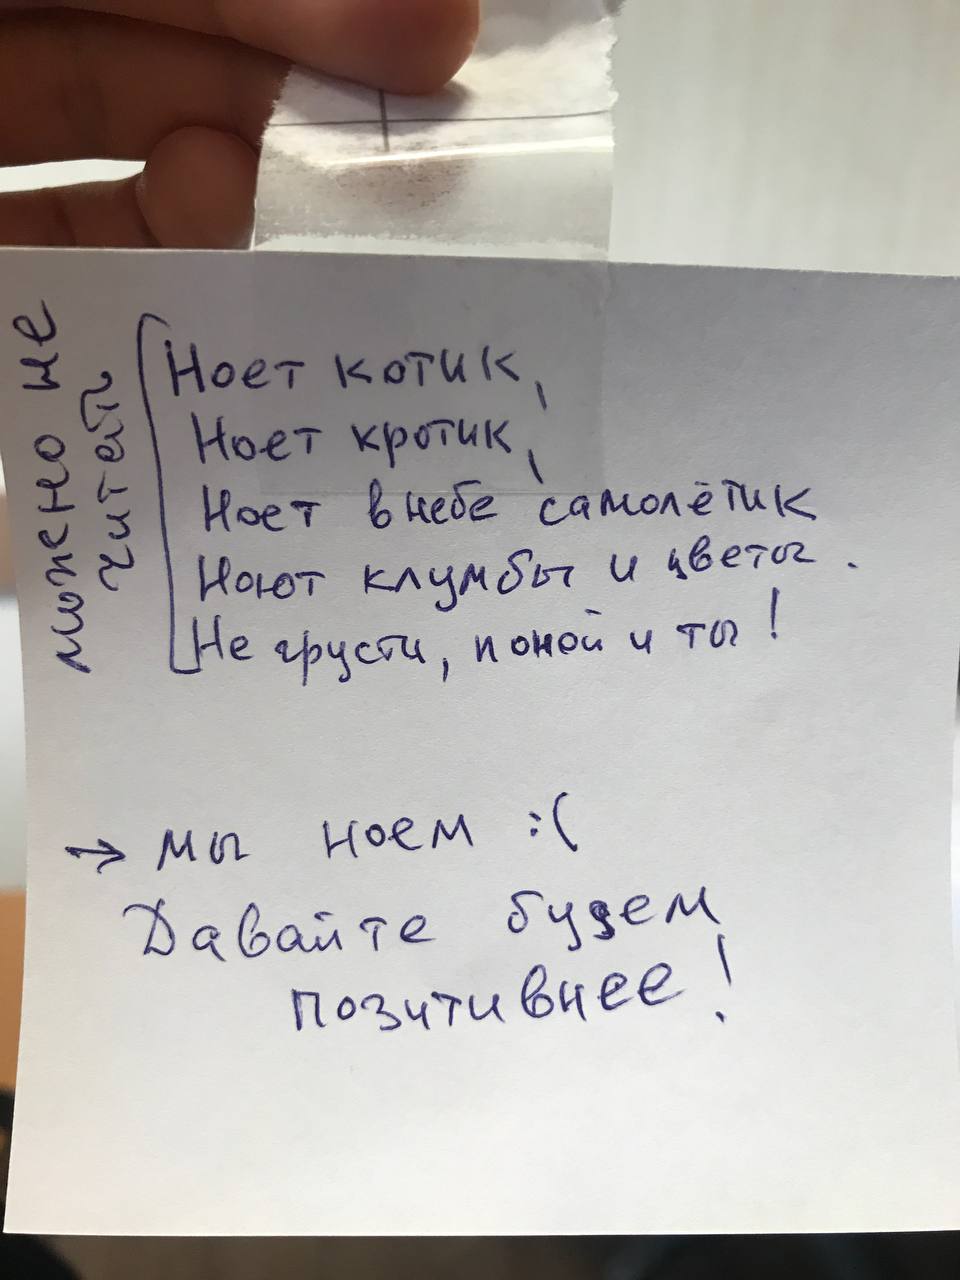 можно не
читать
Ноет котик,
Ноет кротик,
Ноет в небе самолётик
Ноют клумбы и цветы.
Не грусти, поной и ты!
→ мы ноем :(
Давайте будем
позитивнее!